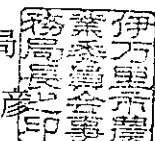 伊万里市農
業委員会事
務局長之印
彦